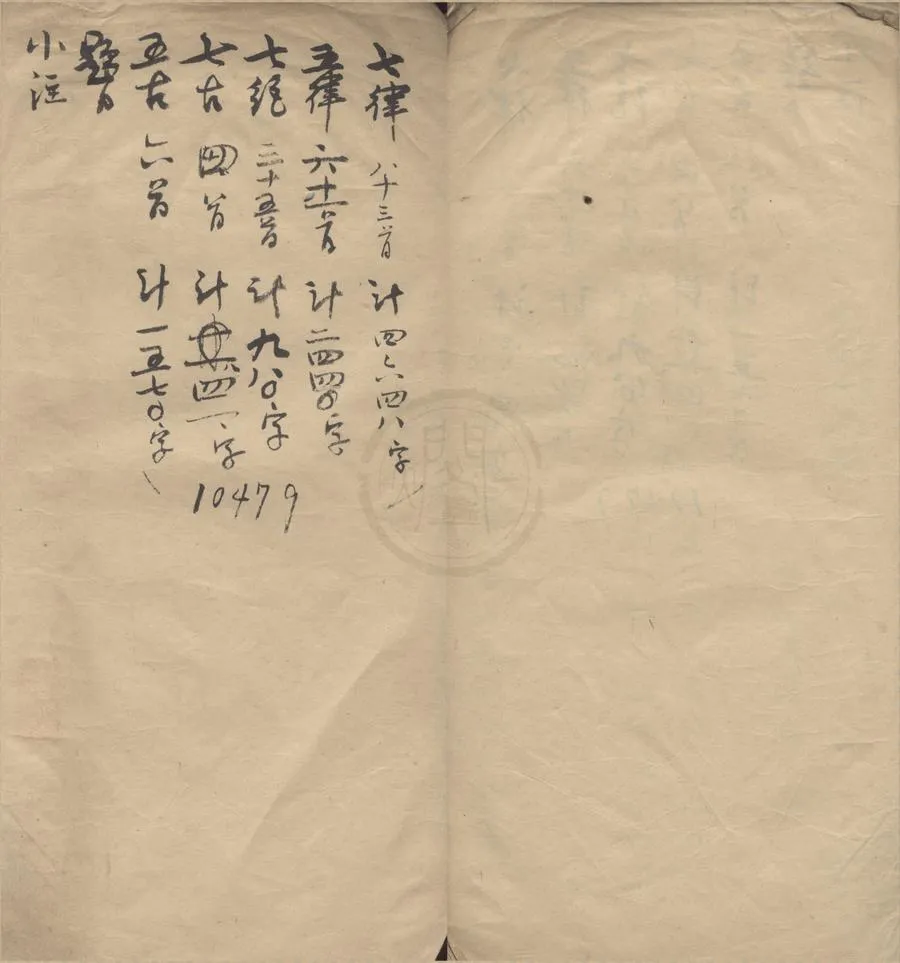 七律 八十三首 計四六四八字
五律 六十一首 計二四四〇字
七絕 三十五首 計九八〇字
七古 四首 計八四一字
五古 六首 計一五七〇字
題目
小注
10479